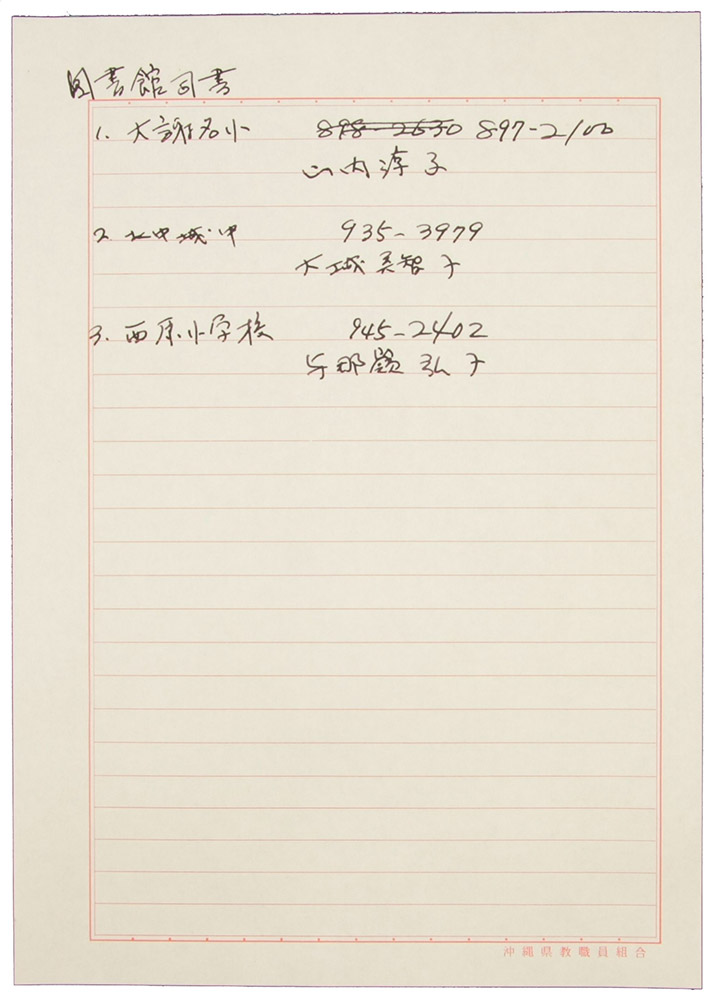 図書館司書
1. 大謝名小 898-2630 897-2100
山内淳子
2. 北中城中 935-3979
大城美智子
3. 西原小学校 945-2402
与那嶺弘子
沖縄県教職員組合